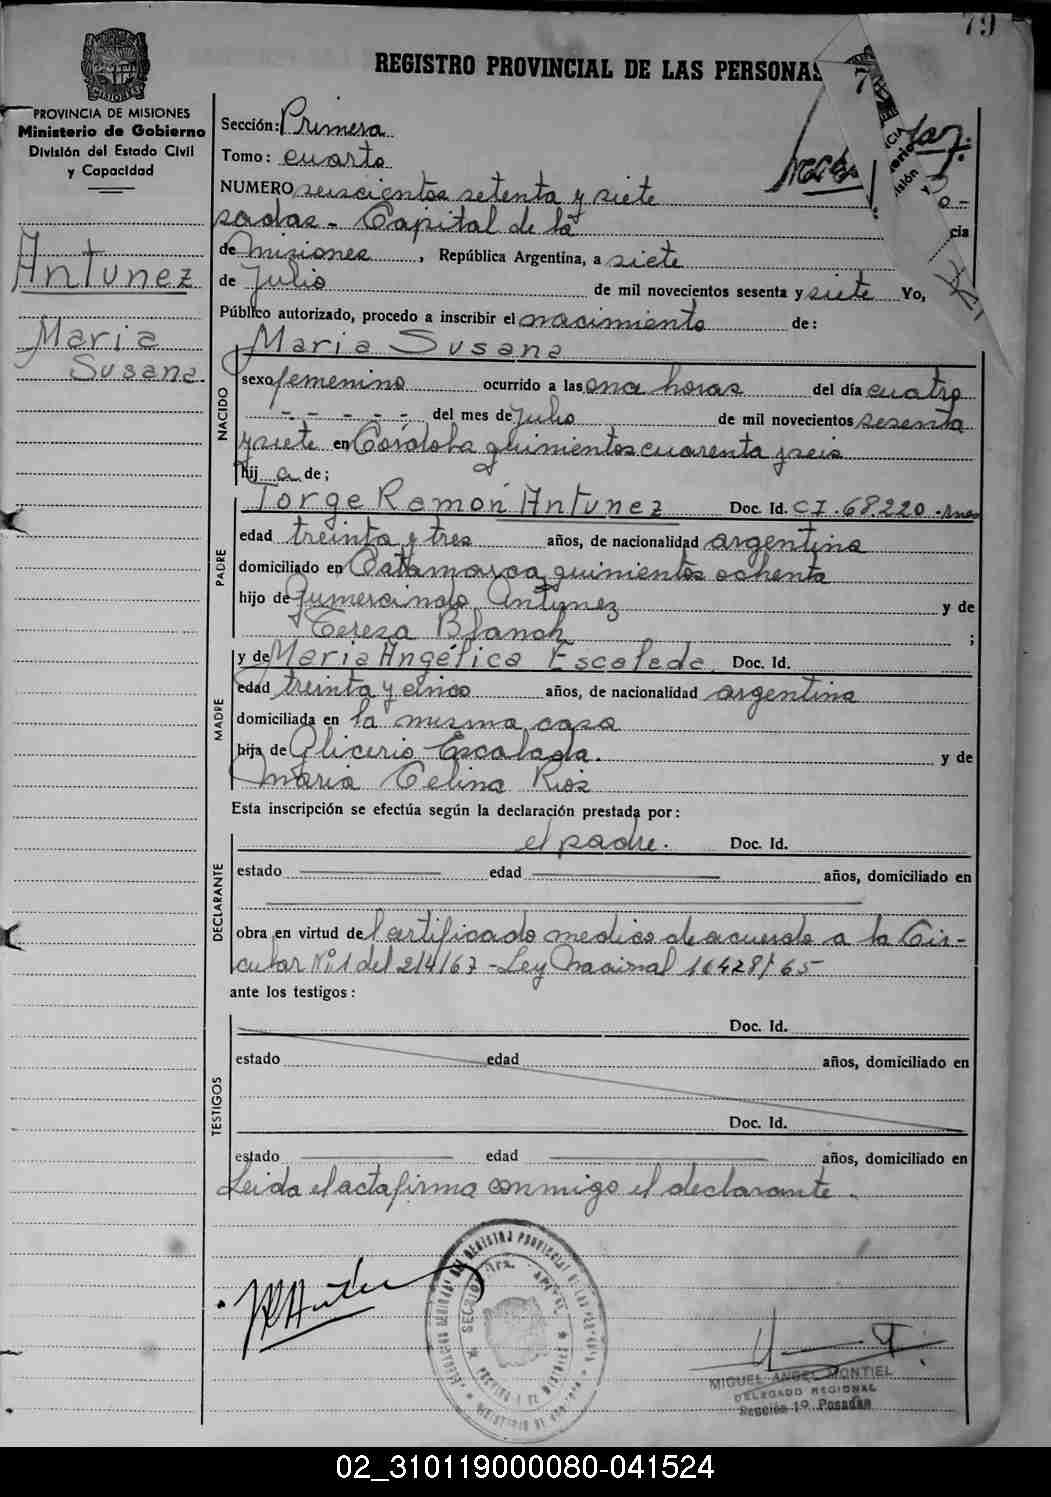 79
REGISTRO PROVINCIAL DE LAS PERSONAS
PROVINCIA DE MISIONES
Ministerio de Gobierno
División del Estado Civil
y Capacidad
Antunez
Maria
Susana
Sección: Primera
Tomo: cuarto
NUMERO seiscientos setenta y siete
sadas - Capital de la
cia
de Misiones, República Argentina, a siete
de Julio de mil novecientos sesenta y siete Yo,
Público autorizado, procedo a inscribir el nacimiento de:
NACIDO
Maria Susana
sexo femenino ocurrido a las once horas del día cuatro
- - - - - del mes de Julio de mil novecientos sesenta
y siete en Córdoba quinientos cuarenta y seis
hij a de;
PADRE
Jorge Ramón Antunez Doc. Id. CI. 68220. Mnes
edad treinta y tres años, de nacionalidad argentina
domiciliado en Catamarca quinientos ochenta
hijo de Gumercindo Antunez y de
Tereza Blanch ;
MADRE
y de Maria Angélica Escalada Doc. Id.
edad treinta y cinco años, de nacionalidad argentina
domiciliada en la misma casa
hija de Glicerio Escalada. y de
Maria Celina Rios
Esta inscripción se efectúa según la declaración prestada por:
DECLARANTE
el padre. Doc. Id.
estado edad años, domiciliado en
obra en virtud de certificado medico de acuerdo a la Cir-
cular Nº1 del 2/4/67 - Ley Nacional 16428/65
ante los testigos:
TESTIGOS
Doc. Id.
estado edad años, domiciliado en
Doc. Id.
estado edad años, domiciliado en
Leida el acta firma conmigo el declarante.
MIGUEL ANGEL MONTIEL
DELEGADO REGIONAL
Sección 1º Posadas
02_310119000080-041524